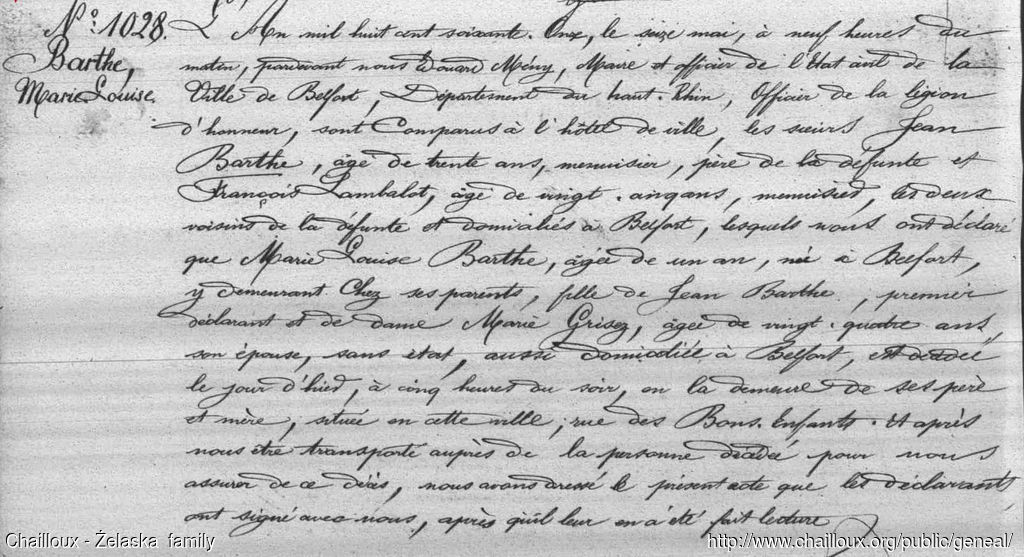 N° 1028.
Barthe,
Marie Louise.
L'An mil huit cent soixante-Onze, le seize mai, à neuf heures du
matin, pardevant nous Edouard Mény, Maire et officier de l'État civil de la
Ville de Belfort, Département du haut-Rhin, Officier de la légion
d'honneur, sont Comparus à l'hôtel de ville, les sieurs Jean
Barthe, âgé de trente ans, menuisier, père de la défunte et
François Lambalot, âgé de vingt-cinq ans, menuisier, les deux
voisins de la défunte et domiciliés à Belfort, lesquels nous ont déclaré
que Marie Louise Barthe, âgée de un an, née à Belfort,
y demeurant Chez ses parents, fille de Jean Barthe, premier
déclarant et de dame Marie Grisez, âgée de vingt-quatre ans,
son épouse, sans état, aussi domiciliée à Belfort, est décédée
le jour d'hier, à cinq heures du soir, en la demeure de ses père
et mère, située en cette ville, rue des Bons-Enfants. Et après
nous être transporté auprès de la personne décédée pour nous
assurer de ce décès, nous avons dressé le présent acte que les déclarants
ont signé avec nous, après qu'il leur en a été fait lecture
Chailloux - Żelaska family
http://www.chailloux.org/public/geneal/